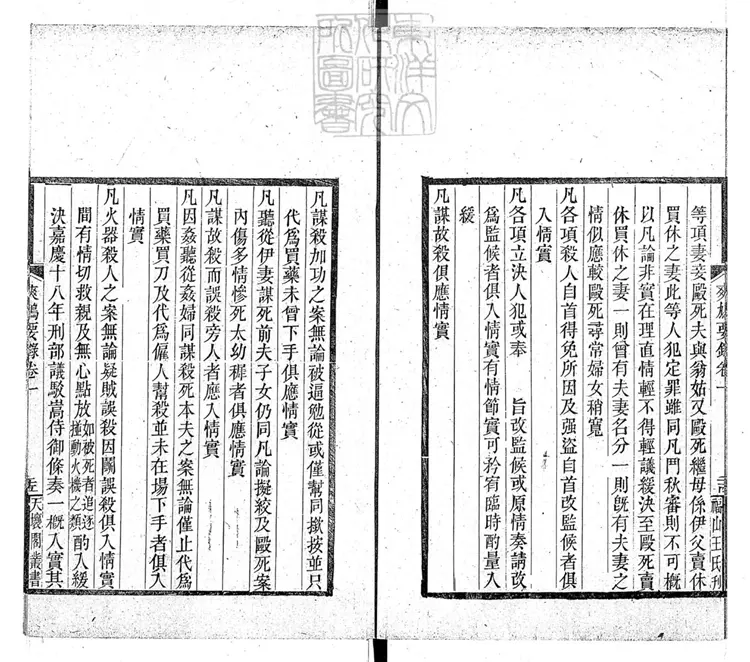 等項妻妾毆死夫與翁姑又毆死繼母係伊父賣休
買休之妻此等人犯定罪雖同凡鬥秋審則不可概
以凡論非實在理直情輕不得輕議緩決至毆死賣
休買休之妻一則曾有夫妻名分一則旣有夫妻之
情似應較毆死尋常婦女稍寬
凡各項殺人自首得免所因及强盜自首改監候者俱
入情實
凡各項立決人犯或奉 旨改監候或原情奏請改
爲監候者俱入情實有情節實可矜宥臨時酌量入
緩
凡謀故殺俱應情實
爽鳩要錄卷一
福山王氏刊
凡謀殺加功之案無論被逼勉從或僅幫同揿按並只
代爲買藥未曾下手俱應情實
凡聽從伊妻謀死前夫子女仍同凡論擬絞及毆死案
內傷多情慘死太幼稺者俱應情實
凡謀故殺而誤殺旁人者應入情實
凡因姦聽從姦婦同謀殺死本夫之案無論僅止代爲
買藥買刀及代爲僱人幫殺並未在場下手者俱入
情實
凡火器殺人之案無論疑賊誤殺因鬭誤殺俱入情實
間有情切救親及無心點放如被死者追逐撞動火機之類酌入緩
決嘉慶十八年刑部議駮嵩侍御條奏一概入實其
爽鳩要錄卷一
五
天壤閣叢書